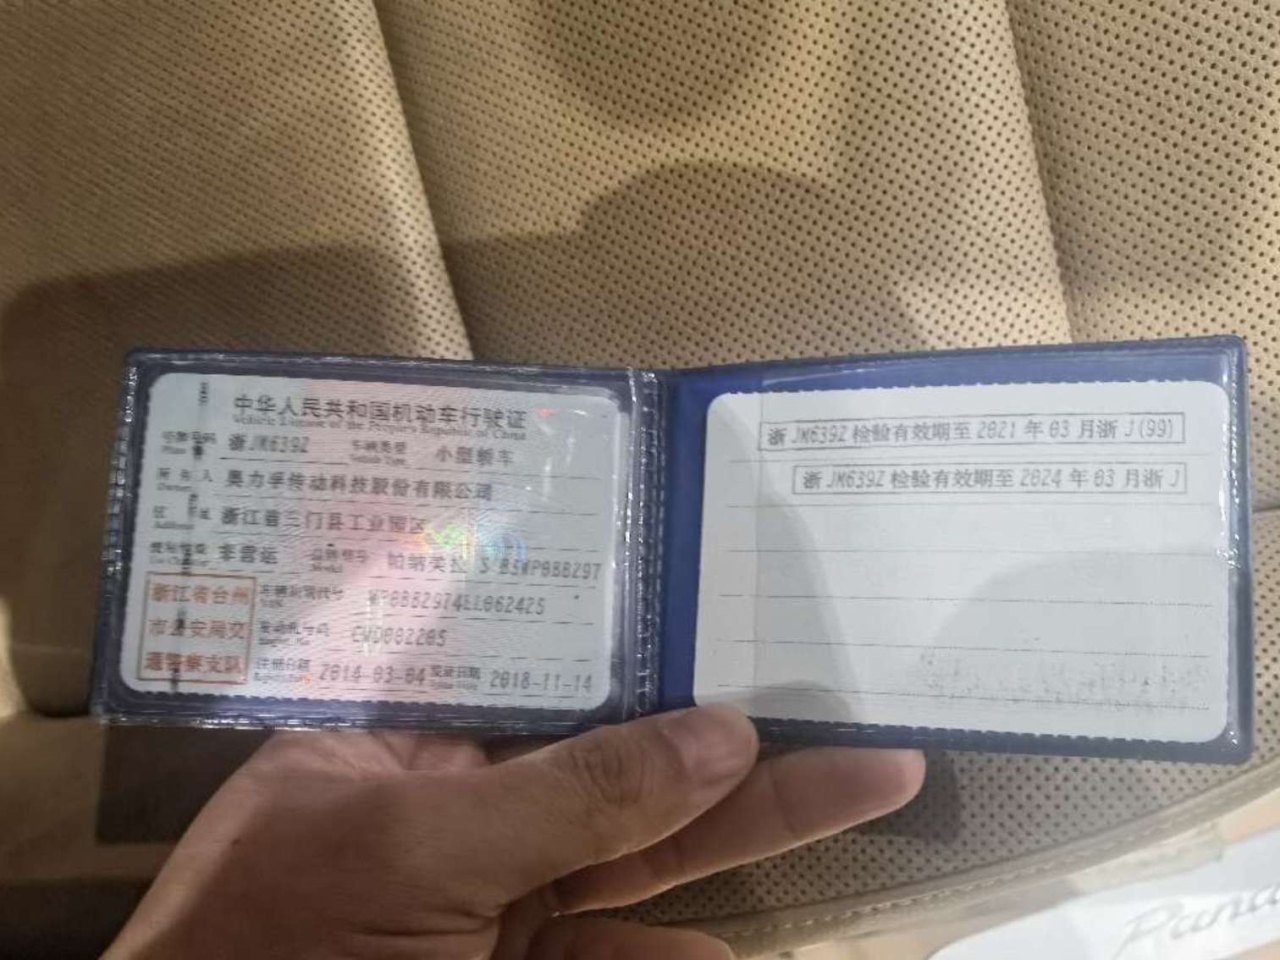 中华人民共和国机动车行驶证
Vehicle License of the People's Republic of China
号牌号码 浙JM639Z 车辆类型 小型轿车
所有人 奥力孚传动科技股份有限公司
Owner
住址 浙江省三门县工业园区
Address
使用性质 非营运 品牌型号 帕纳美拉 S
Model
浙江省台州 车辆识别代号
市公安局交 发动机号码
通警察支队 注册日期 2014-03-04 发证日期 2018-11-14
浙JM639Z检验有效期至2021年03月浙J(99)
浙JM639Z检验有效期至2024年03月浙J
Pana